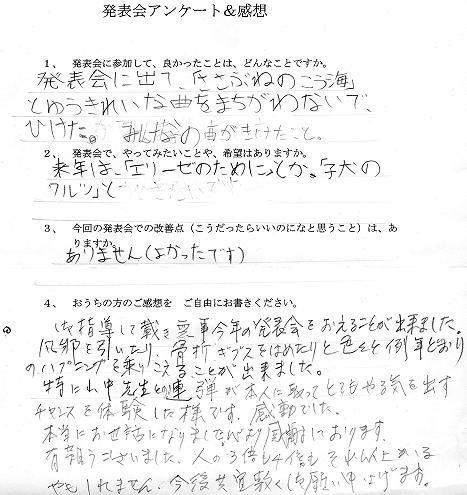 発表会アンケート&感想
1、 発表会に参加して、良かったことは、どんなことですか。
発表会に出て、「きさぶねのこう海」
とゆうきれいな曲をまちがわないで、
ひけた。 みんなの曲がきけたこと。
2、 発表会で、やってみたいことや、希望はありますか。
来年は、「エリーゼのために」とか。「子犬の
ワルツ」と
3、 今回の発表会での改善点（こうだったらいいのになと思うこと）は、あ
りますか。
ありません（よかったです）
4、 おうちの方のご感想を ご自由にお書きください。
御指導して戴き無事今年の発表会をおえることが出来ました。
風邪を引いたり、骨折ギプスをはめたりと色々と例年どおり
の、ハプニングを乗りこえることが出来ました。
特に山中先生との連弾が本人に取ってとてもやる気を出す
チャンスを体験した様です。感動でした。
本当にお世話になりました 感謝しております。
有難うございました。人の3倍も4倍も それ以上かかる
やもしれません。今後共宜敷くお願い申し上げます。